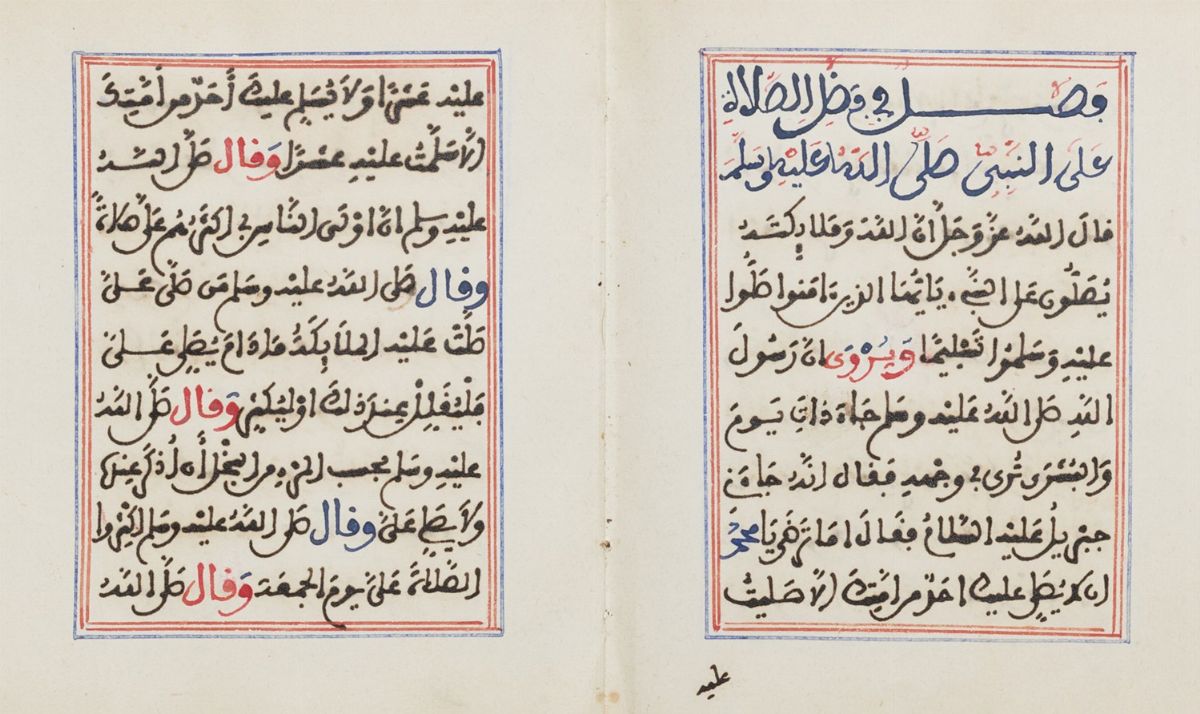 فصل في فضل الصلاة
على النبي صلى الله عليه وسلم
قال الله عز وجل ان الله وملائكته
يصلون على النبي يايها الذين ءامنوا صلوا
عليه وسلموا تسليما ويروى ان رسول
الله صلى الله عليه وسلم جاء ذات يوم
والبشرى ترى في وجهه فقال انه جاءني
جبريل عليه السلام فقال اما ترضى يا محمد
ان لا يصلي عليك احد من امتك الا صليت
عليه
عليه عشرا ولا يسلم عليك أحد من امتك
الا سلمت عليه عشرا وقال صلى الله
عليه وسلم ان اولى الناس بي اكثرهم علي صلاة
وقال صلى الله عليه وسلم من صلى علي
صلت عليه الملائكة مادام يصلي علي
فليقلل عند ذلك او ليكثر وقال صلى الله
عليه وسلم بحسب المرء من البخل أن أذكر عنده
ولا يصلي علي وقال صلى الله عليه وسلم اكثروا
الصلاة علي يوم الجمعة وقال صلى الله